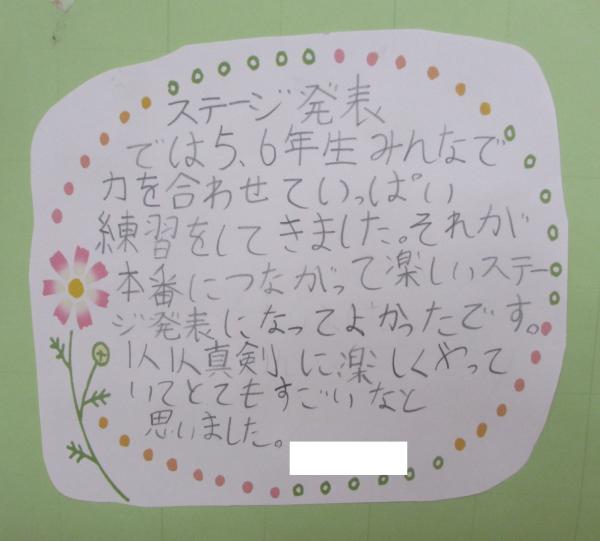 ステージ発表
では5、6年生みんなで
力を合わせていっぱい
練習をしてきました。それが
本番につながって楽しいステー
ジ発表になってよかったです。
1人1人真剣に楽しくやって
いてとてもすごいなと
思いました。